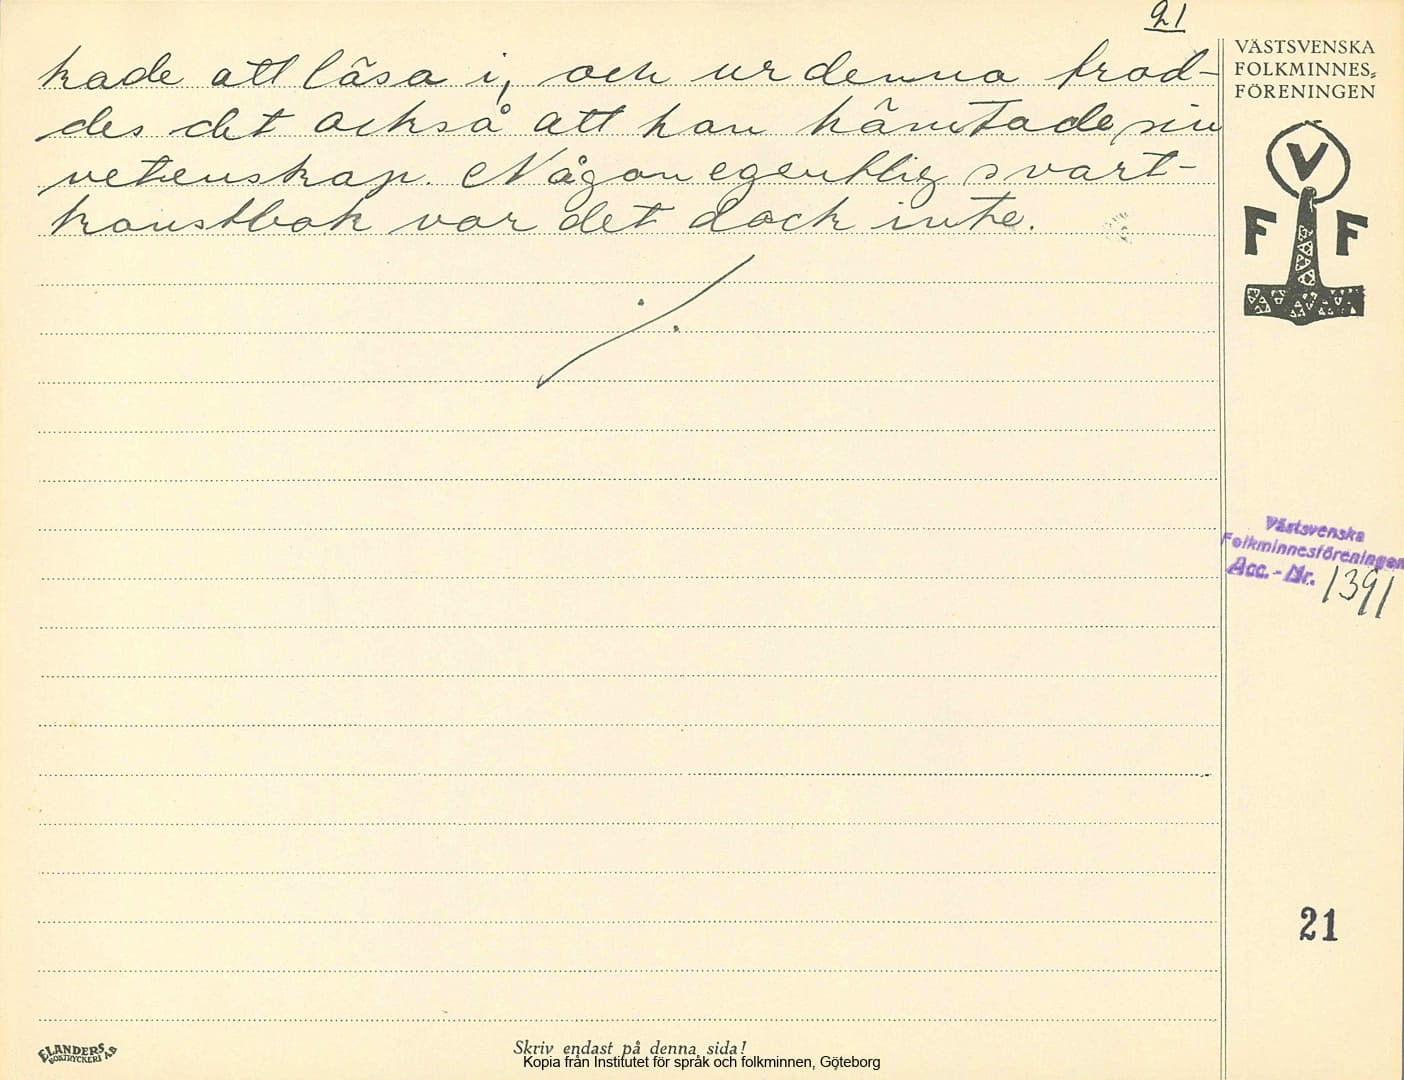 21
kade att läsa i, och ur denna trod-
des det också att han hämtade sin
vetenskap. Någon egentlig svart-
konstbok var det dock inte.
VÄSTSVENSKA
FOLKMINNES-
FÖRENINGEN
V
F F
Västsvenska
Folkminnesföreningen
Acc. - Nr. 1391
21
ELANDERS
BOKTRYCKERI AB
Skriv endast på denna sida!
Kopia från Institutet för språk och folkminnen, Göteborg